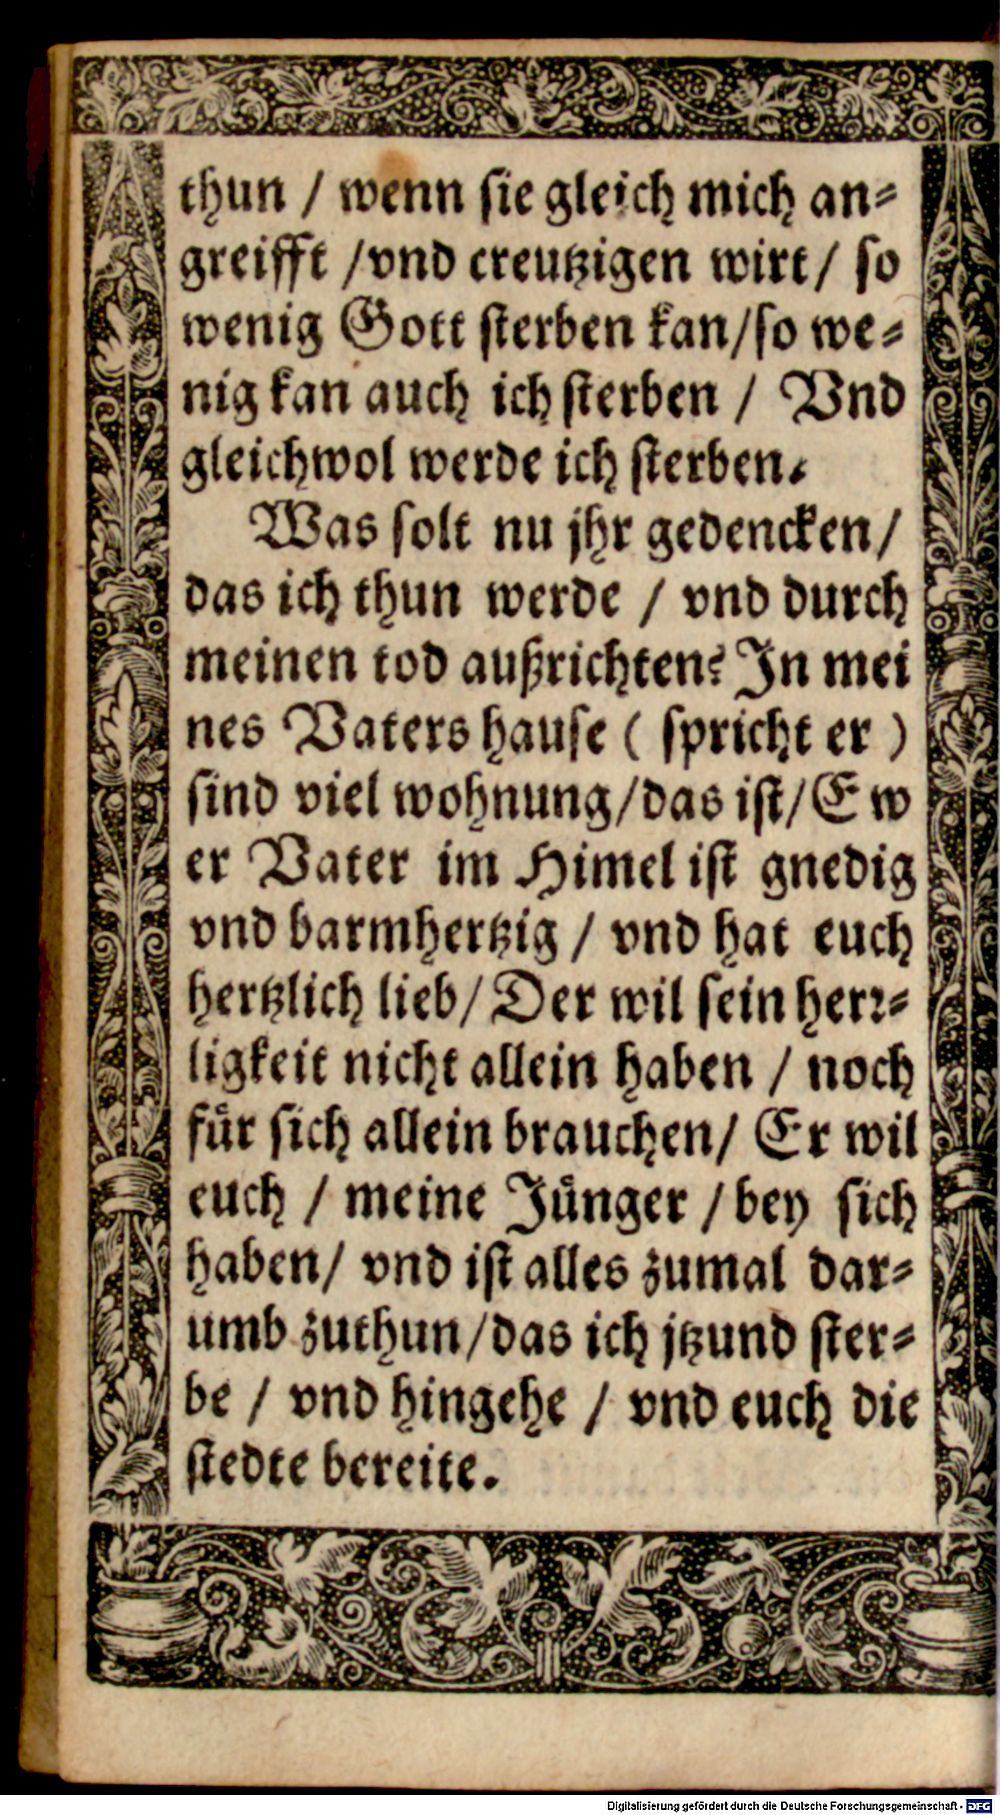 thun / wenn sie gleich mich an⸗
greifft /vnd creutzigen wirt/ so
wenig Gott sterben kan/so we⸗
nig kan auch ich sterben / Vnd
gleichwol werde ich sterben.
Was solt nu jhr gedencken/
das ich thun werde / vnd durch
meinen tod außrichten? In mei
nes Vaters hause ( spricht er )
sind viel wohnung/das ist/Ew
er Vater im Himel ist gnedig
vnd barmhertzig / vnd hat euch
hertzlich lieb/ Der wil sein herꝛ⸗
ligkeit nicht allein haben / noch
fuͤr sich allein brauchen/ Er wil
euch / meine Juͤnger / bey sich
haben/ vnd ist alles zumal dar⸗
umb zuthun/das ich jtzund ster⸗
be / vnd hingehe / vnd euch die
stedte bereite.
Digitalisierung gefördert durch die Deutsche Forschungsgemeinschaft - DFG